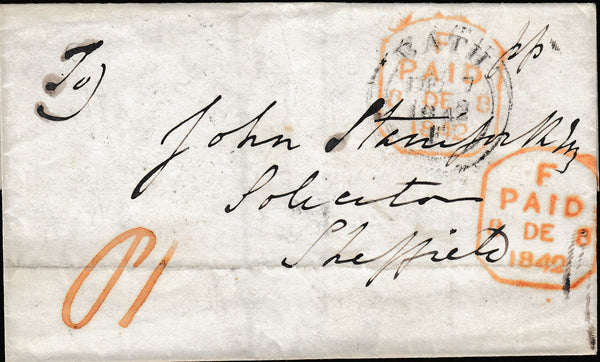 To)
pp
BATH
DE 7
1842
F
PAID
8 DE 8
1842
John Stamforth Esq
Solicitor
Sheffield
F
PAID
8 DE 8
1842